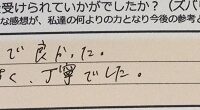 受けられていかがでしたか？（ズバ
な感想が、私達の何よりの力となり今後の参考と
で良かった。
く、丁寧でした。